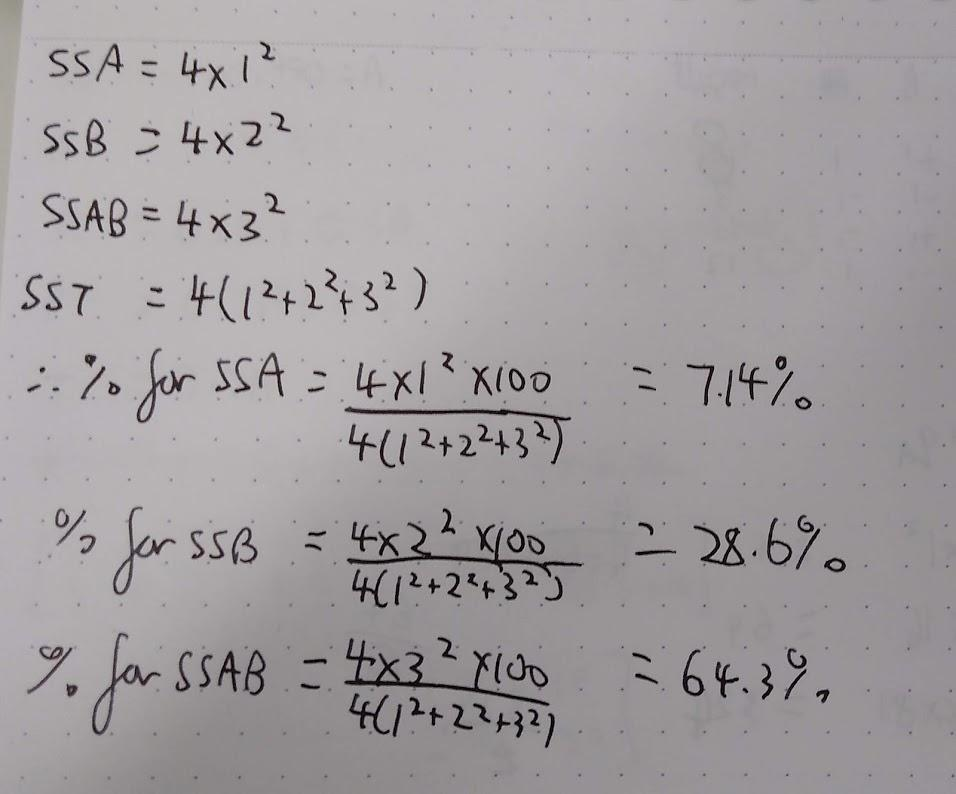 SSA = 4×1²
SSB = 4×2²
SSAB = 4×3²
SST = 4(1²+2²+3²)
∴ % for SSA = 4×1²×100 / 4(1²+2²+3²) = 7.14%
% for SSB = 4×2²×100 / 4(1²+2²+3²) = 28.6%
% for SSAB = 4×3²×100 / 4(1²+2²+3²) = 64.3%